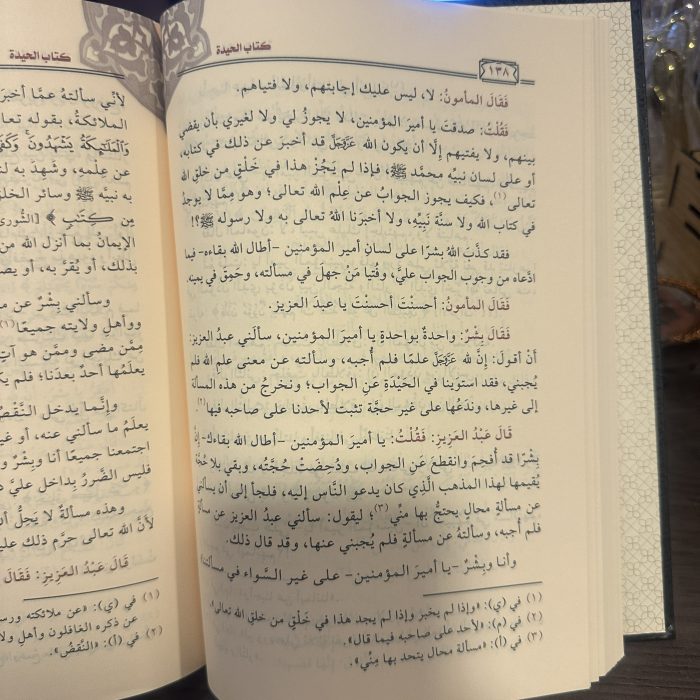 كتاب الحيدة
١٣٨
فَقَالَ المأمونُ: لا، ليس عليك إجابتهم، ولا فتياهم.
فَقُلْتُ: صدقتَ يا أميرَ المؤمنين، لا يجوزُ لي ولا لغيري بأن يقضي
بينهم، ولا يفتيهم إلَّا أن يكون الله عَزَّوَجَلَّ قد أخبرَ عن ذلك في كتابه،
أو على لسان نبيِّه محمَّد ﷺ، فإذا لم يَجُزْ هذا في خَلْقٍ من خلقِ الله
تعالى(١)، فكيف يجوز الجوابُ عن عِلْم الله تعالى؛ وهو مِمَّا لا يوجدُ
في كتاب الله ولا سنَّة نَبِيِّه، ولا أخبرَنا اللهُ تعالى به ولا رسوله ﷺ؟!
فقد كذَّبَ اللهُ بشرًا على لسانِ أمير المؤمنين –أطال الله بقاءه– فيما
ادَّعاه من وجوبِ الجواب عليَّ، وفُتيا مَنْ جهلَ في مسألته، وحَمِقَ في يمينه.
فَقَالَ المأمونُ: أحسنْتَ أحسنْتَ يا عبدَ العزيز.
فَقَالَ بِشْرٌ: واحدةٌ بواحدةٍ يا أميرَ المؤمنين، سألَني عبدُ العزيز:
أنْ أقولَ: إنَّ لله عَزَّوَجَلَّ علمًا فلم أُجبه، وسألته عن معنى علمِ الله فلم
يُجبني، فقد استوَينا في الحَيْدَةِ عَنِ الجواب؛ ونخرجُ من هذه المسألة
إلى غيرها، وندَعُها على غير حجَّة تثبت لأحدنا على صاحبه فيها(٢)
قَالَ عَبْدُ العَزِيزِ: فَقُلْتُ: يا أميرَ المؤمنين –أطال الله بقاءك– إنَّ
بِشْرًا قد أُفحِمَ وانقطعَ عَنِ الجوابِ، ودُحِضَتْ حُجَّتُه، وبقي بلا حُجَّة
يُقيمها لهذا المذهبِ الَّذي كان يدعو النَّاس إليه، فلجأ إلى أن يسألني
عن مسألةٍ محالٍ يحتجُّ بها منِّي(٣)؛ ليقول: سألني عبدُ العزيز عن مسألةٍ
فلم أُجبه، وسألتهُ عن مسألةٍ فلم يُجبني عنها، وقد قال ذلك.
وأنا وبِشْرٌ –يا أميرَ المؤمنين– على غير السَّواء في مسألتنا؛
(١) في (ي): «وإذا لم يخبر وإذا لم يجد هذا في خَلْقٍ من خلقِ الله تعالى».
(٢) في (م): «لأحد على صاحبه فيما قال».
(٣) في (أ): «مسألة محال يتحد بها مِنِّي».
كتاب الحيدة
لأنِّي سألتهُ عمَّا أخبرَ
الملائكةُ، بقوله تعا
وَٱلْمَلَٰٓئِكَةُ يَشْهَدُونَ وَكَفَىٰ
عن عِلْمِهِ، وشَهِدَ به ل
به نبيَّه ﷺ وسائر الخل
مِن كِتَٰبٍ ﴾ [الشورى
الإيمانُ بما أنزل الله من
بذلك، أو يُقرَّ به، أو يص
وسألني بِشْرٌ عن م
ووأهلِ ولايته جميعًا(١)
مِمَّن مضى وممَّن هو آتٍ
يعلَمُها أحدٌ بعدَنا؛ فلم يك
وإنَّما يدخل النَّقْصُ
يعلَمُ ما سألني عنه، أو غير
اجتمعنا جميعًا أنا وبِشْرٌ و
فليس الضَّررُ بداخل عليَّ د
وهذه مسألةٌ لا يَحِلُّ أن
لأنَّ الله تعالى حرَّم ذلك عليـ
قَالَ عَبْدُ العَزِيزِ: فَقَالَ
(١) في (ي): «عن ملائكته ورسـ
عن ذكره الغافلون وأهلِ ولا
(٢) في (أ): «النَّقصُ».